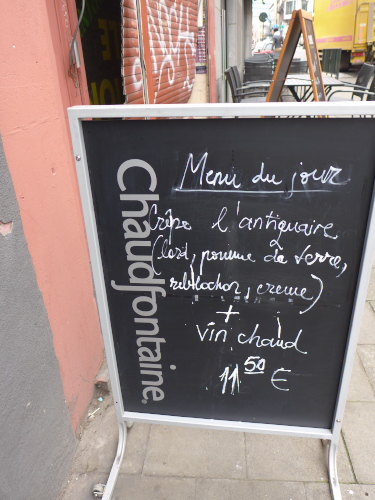 Chaudfontaine.
Menu du jour
Crêpe l'antiquaire
(lard, pomme de terre,
reblochon, creme)
+
vin chaud
11 50 €